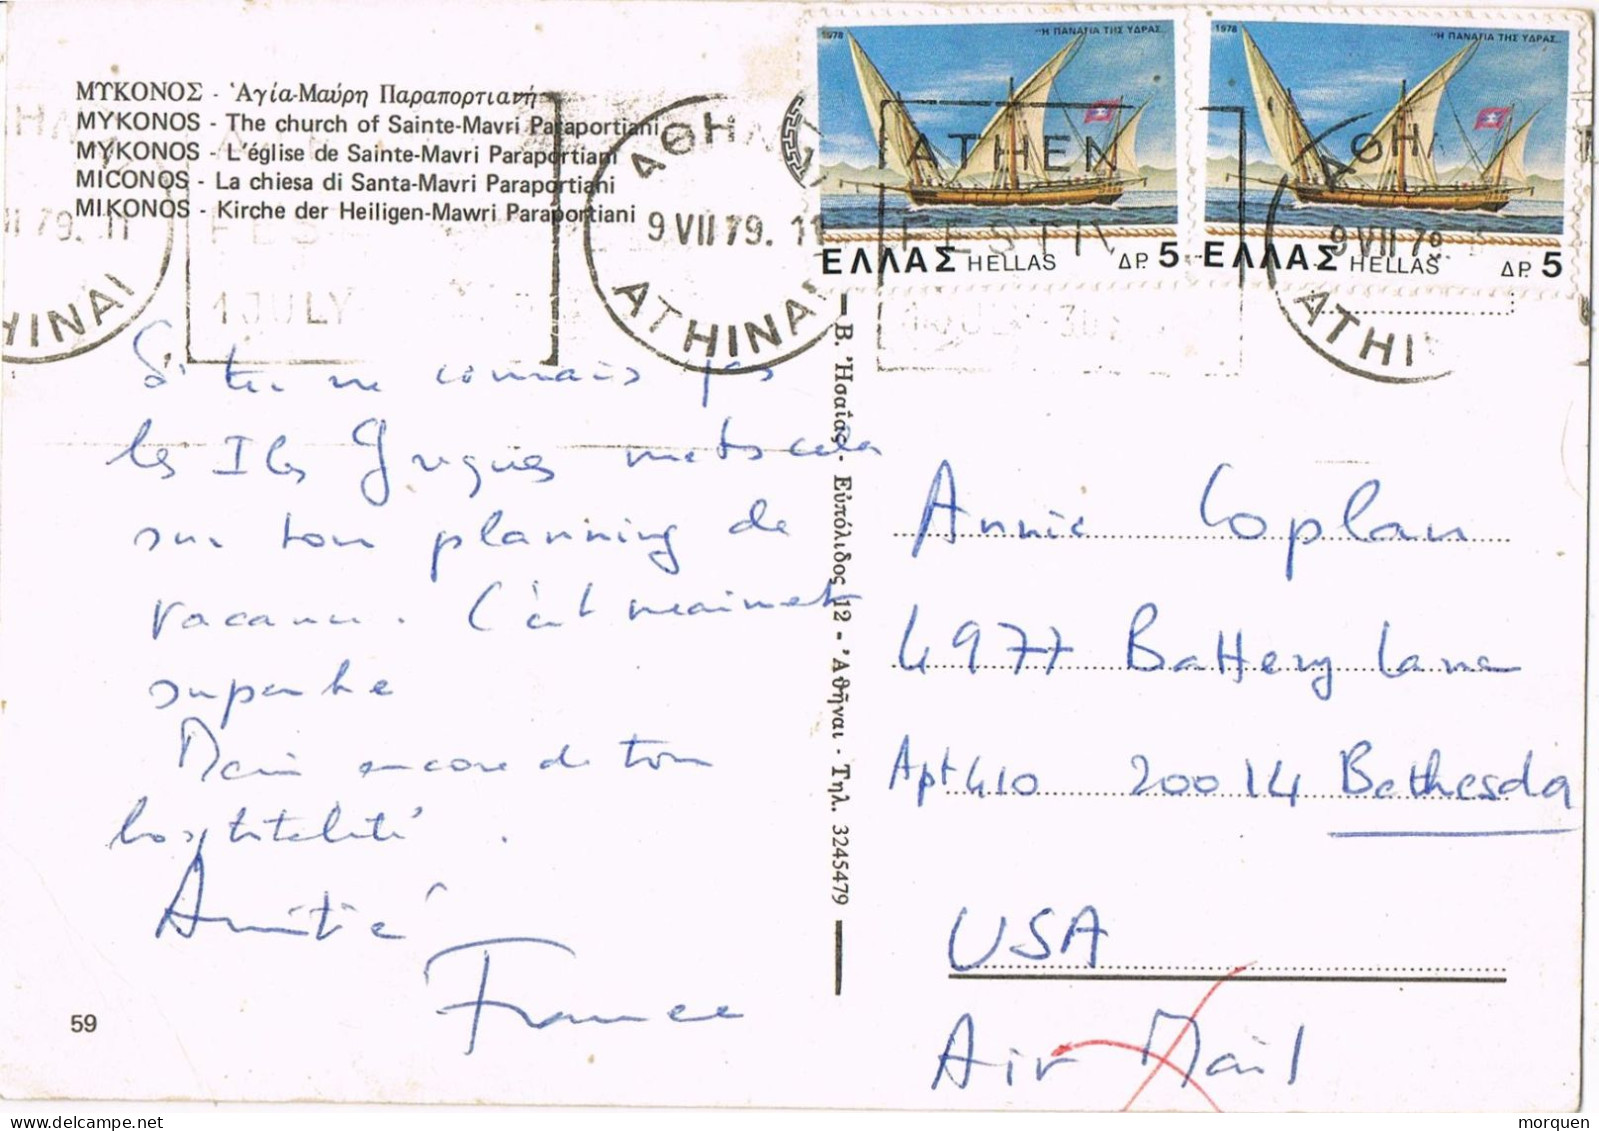 ΜΥΚΟΝΟΣ - Ἁγία-Μαύρη Παραπορτιανή
MYKONOS - The church of Sainte-Mavri Paraportiani
MYKONOS - L'église de Sainte-Mavri Paraportiani
MICONOS - La chiesa di Santa-Mavri Paraportiani
MIKONOS - Kirche der Heiligen-Mawri Paraportiani
1978
"Η ΠΑΝΑΓΙΑ ΤΗΣ ΥΔΡΑΣ"
ΕΛΛΑΣ HELLAS ΔΡ. 5
1978
"Η ΠΑΝΑΓΙΑ ΤΗΣ ΥΔΡΑΣ"
ΕΛΛΑΣ HELLAS ΔΡ. 5
VII 79. 11
HINAI
1 JULY
ΑΘΗΝΑΙ
9 VII 79. 11
ATHINAI
ATHEN
FESTIV
ΑΘΗ
9 VII 79
ATHI
Si tu ne connais pas
les Iles Grecques mets cela
sur ton planning de
vacances. C'est vraiment
superbe
Merci encore de ton
hospitalité.
Amitié
France
59
Β. Ἡσαΐας - Εὐπόλιδος 12 - Ἀθῆναι - Τηλ. 3245479
Annie Coplan
4977 Battery Lane
Apt 410 20014 Bethesda
USA
Air Mail
www.delcampe.net
morquen